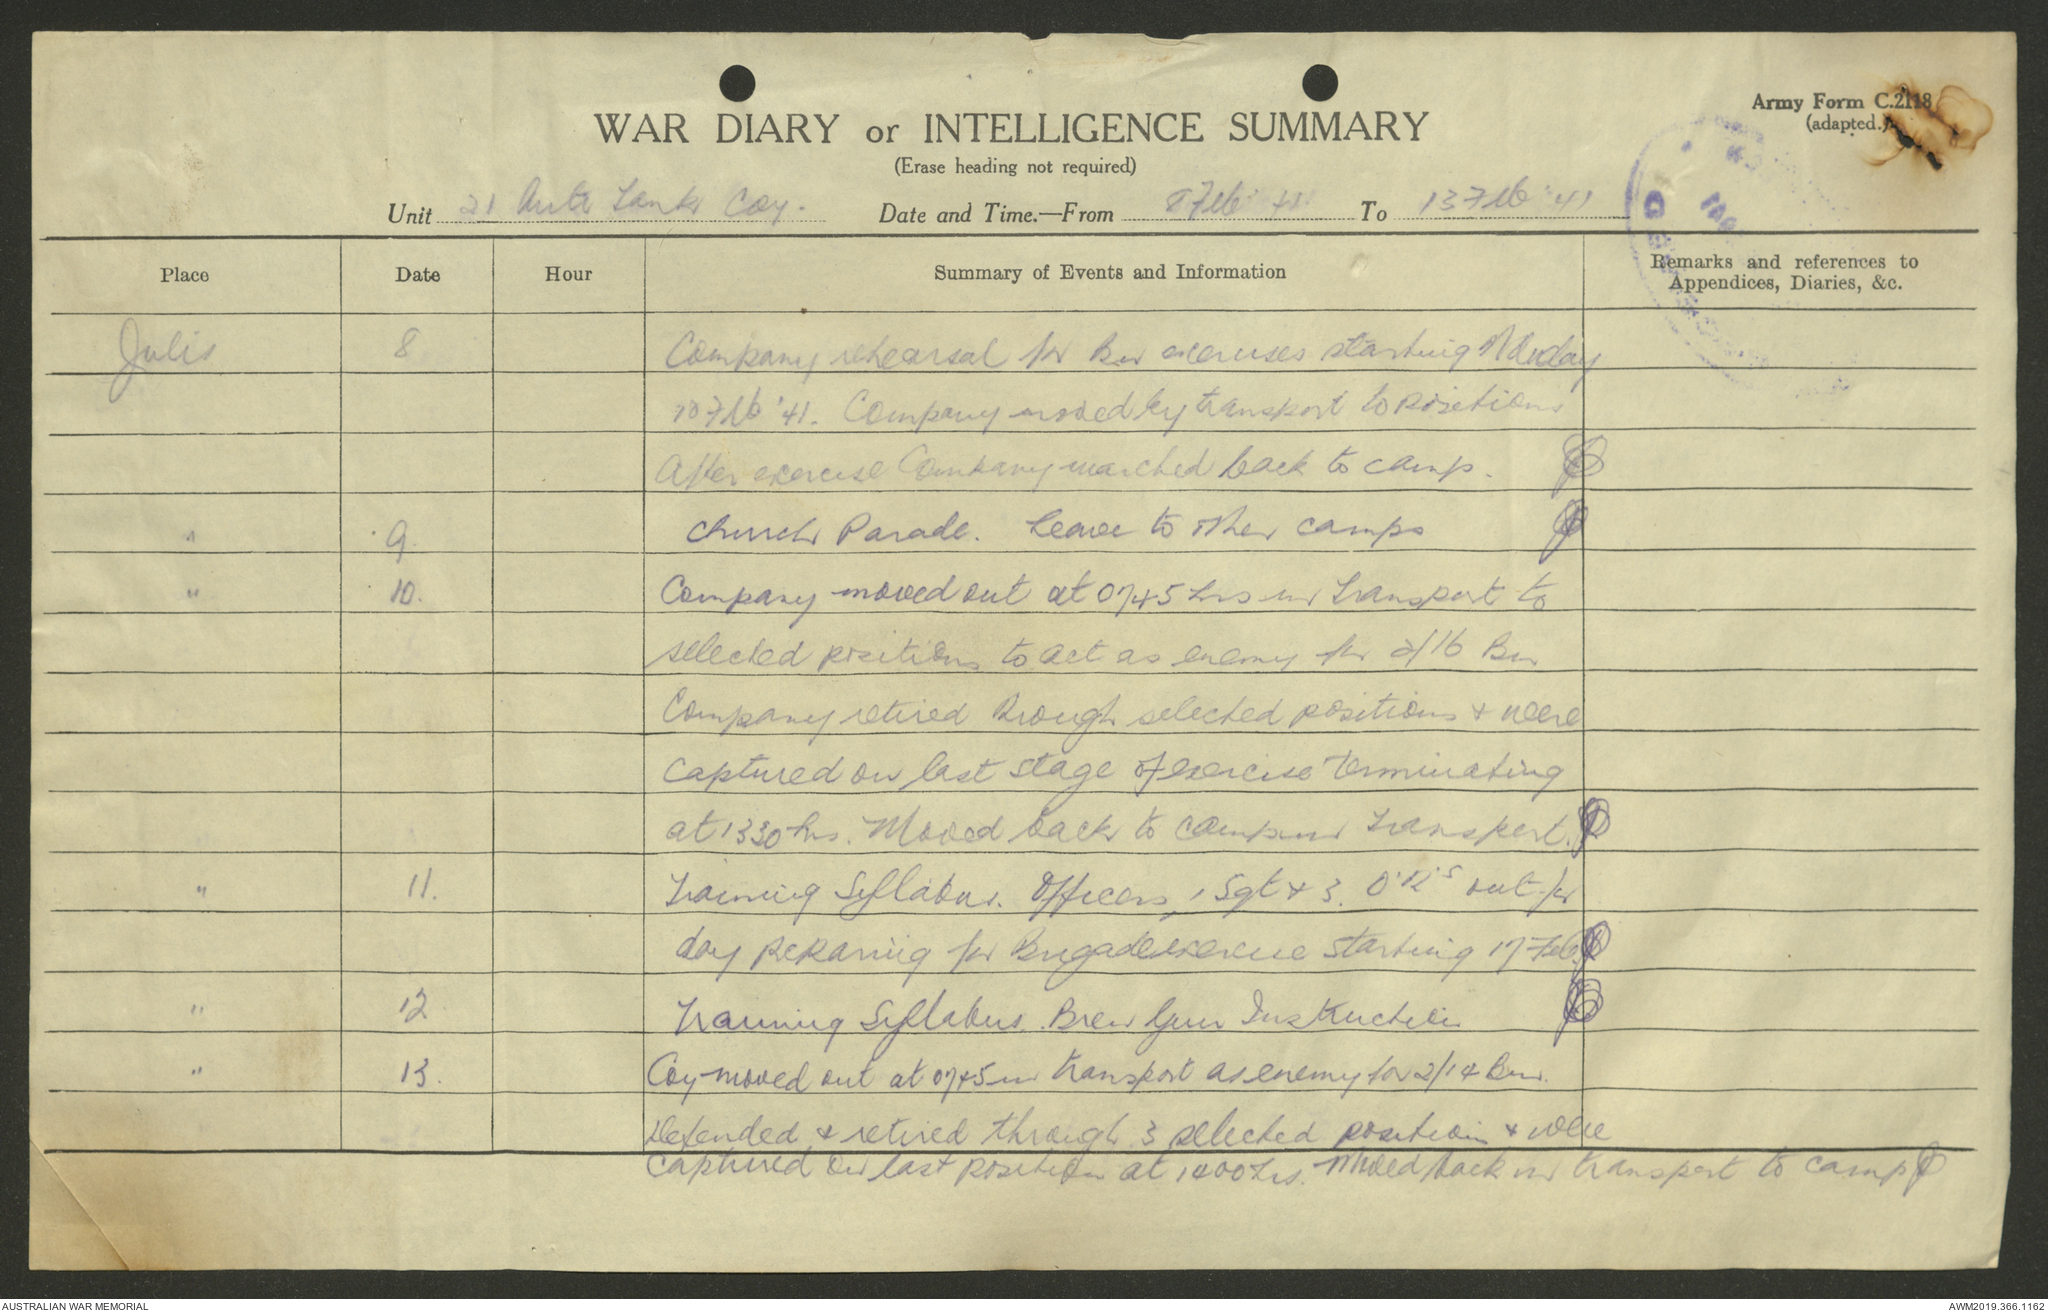 Army Form C.2118
(adapted.)
WAR DIARY or INTELLIGENCE SUMMARY
(Erase heading not required)
Unit 21 Anti Tank Coy. Date and Time.—From 8 Feb '41 To 13 Feb '41
Place Date Hour Summary of Events and Information Remarks and references to Appendices, Diaries, &c.
Julis 8 Company rehearsal for Bn exercises starting Monday
10 Feb '41. Company moved by transport to positions
After exercise Company marched back to camp.
" 9. Church Parade. Leave to other camps
" 10. Company moved out at 0745 hrs in transport to
selected positions to act as enemy for 2/16 Bn
Company retired through selected positions & were
captured on last stage of exercise terminating
at 1330 hrs. Moved back to camp in transport.
" 11. Training Syllabus. Officers, 1 Sgt & 3. O'R's out for
day preparing for Brigade exercise starting 17 Feb.
" 12 Training Syllabus. Bren Gun Instruction
" 13. Coy moved out at 0745 in transport as enemy for 2/14 Bn.
Defended & retired through 3 selected positions & were
captured on last position at 1400 hrs. Moved back in transport to camp
AUSTRALIAN WAR MEMORIAL AWM2019.366.1162